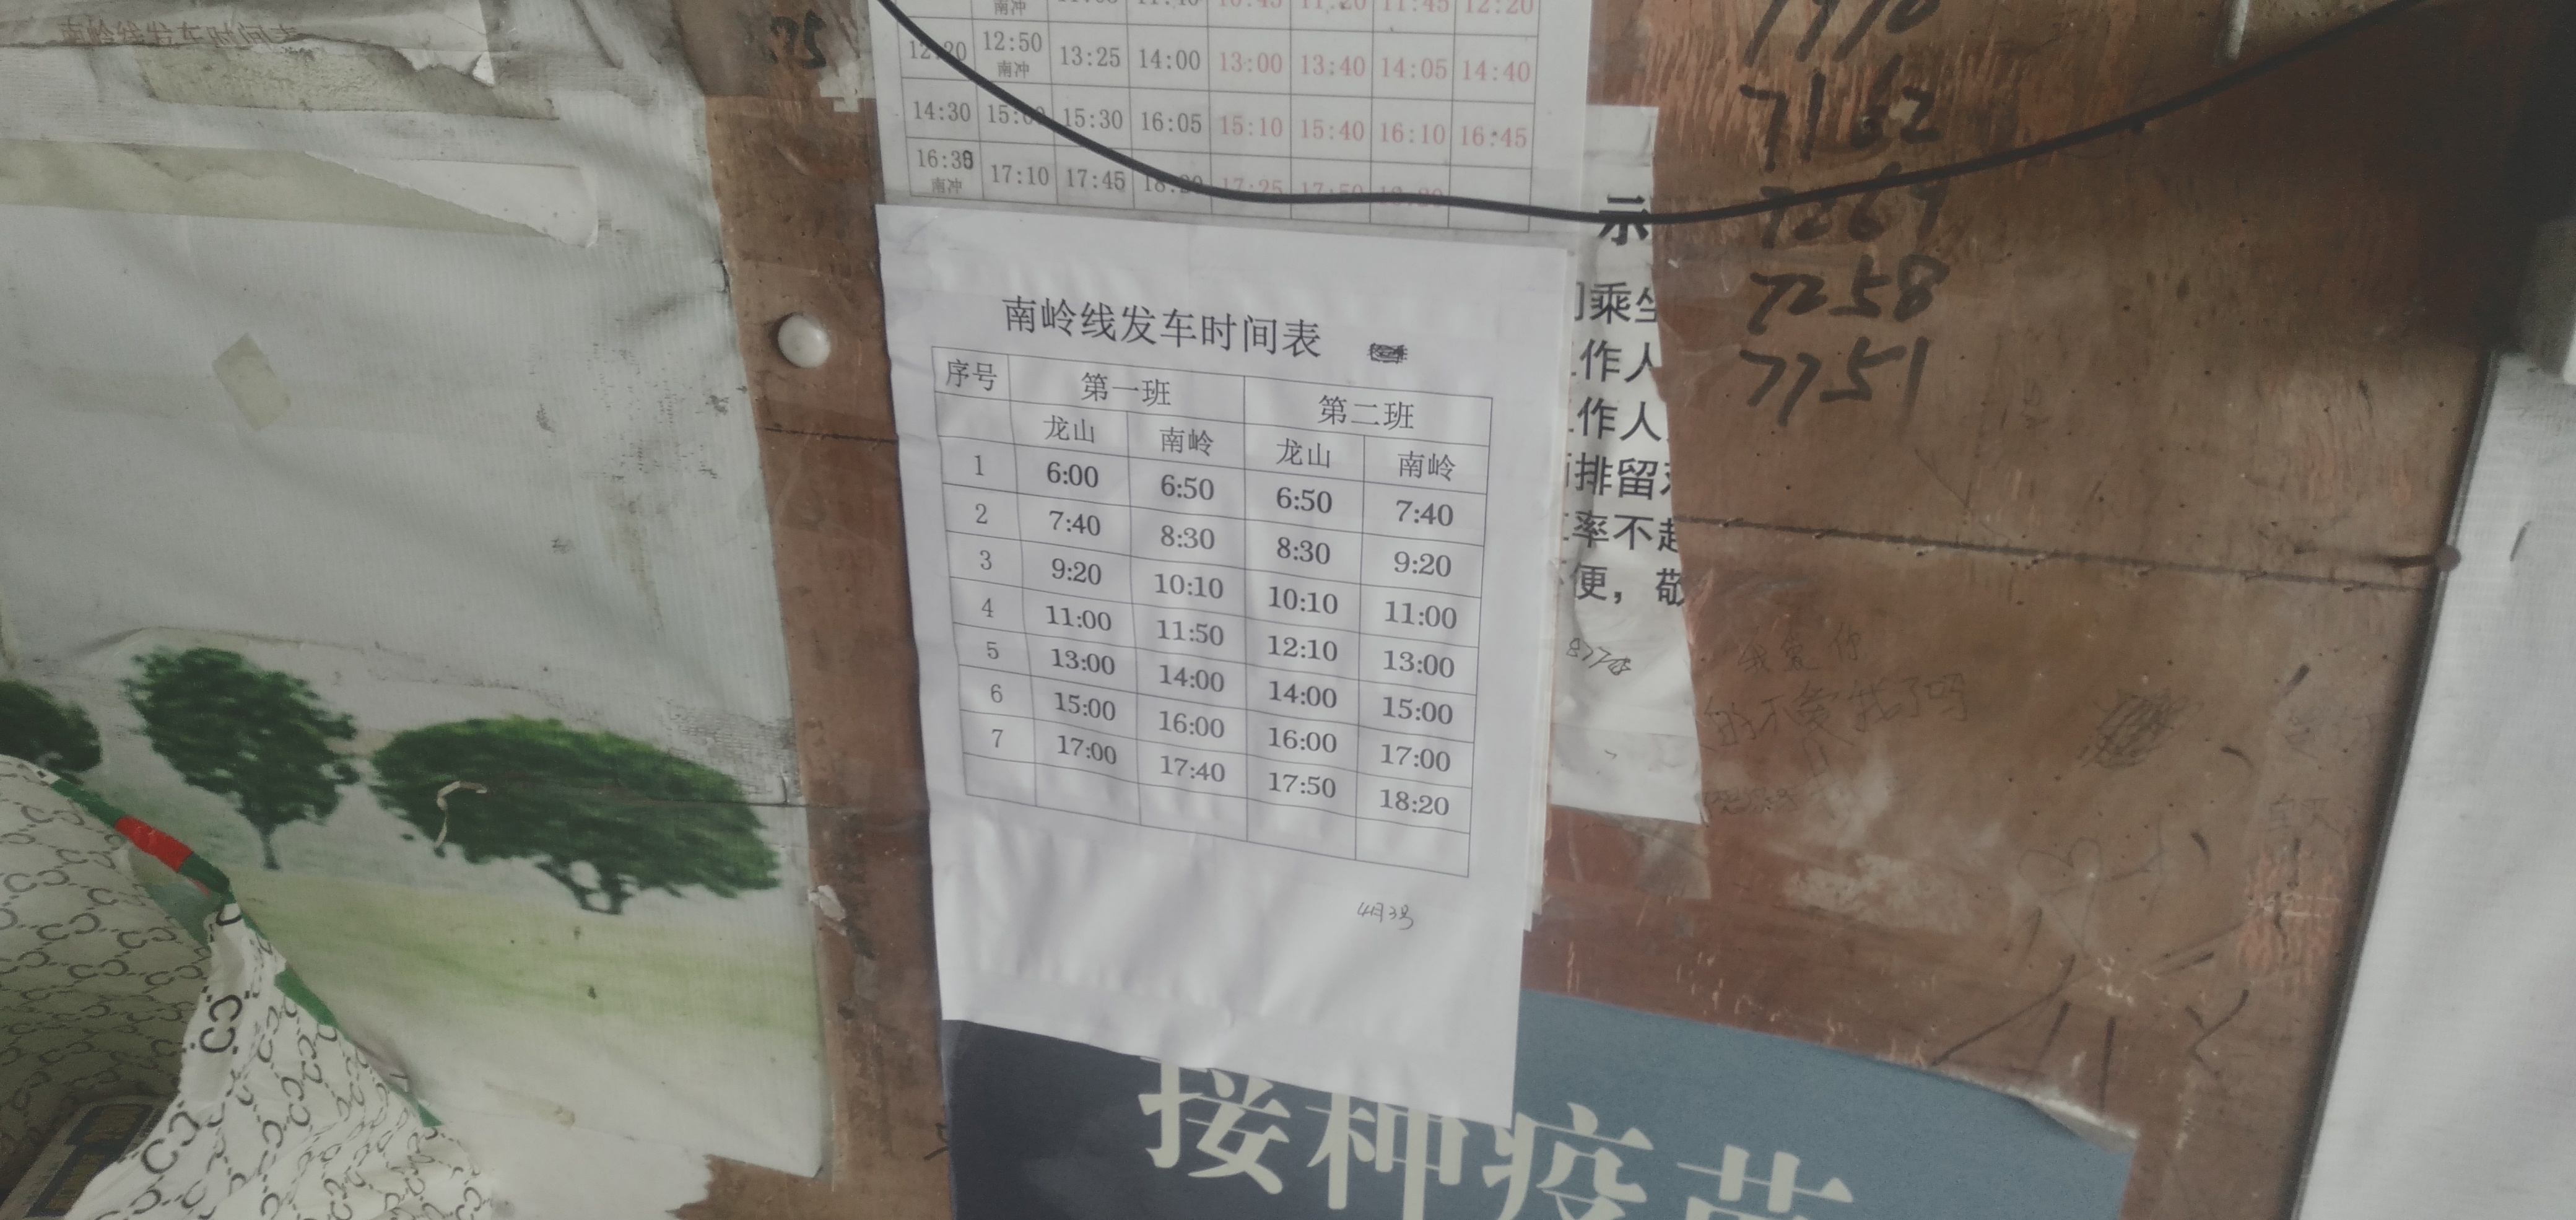 南岭线发车时间表
75
南冲
12:20
12:50 13:25 14:00 13:00 13:40 14:05 14:40
南冲
14:30 15:30 16:05 15:10 15:40 16:10 16:45
16:30 17:10 17:45
南冲
南岭线发车时间表
序号 第一班 第二班
龙山 南岭 龙山 南岭
1 6:00 6:50 6:50 7:40
2 7:40 8:30 8:30 9:20
3 9:20 10:10 10:10 11:00
4 11:00 11:50 12:10 13:00
5 13:00 14:00 14:00 15:00
6 15:00 16:00 16:00 17:00
7 17:00 17:40 17:50 18:20
4月3号
示
乘坐
作人
作人
排留
率不起
便，敬
7162
7269
7258
7751
我爱你
的不爱我了吗
接种疫苗